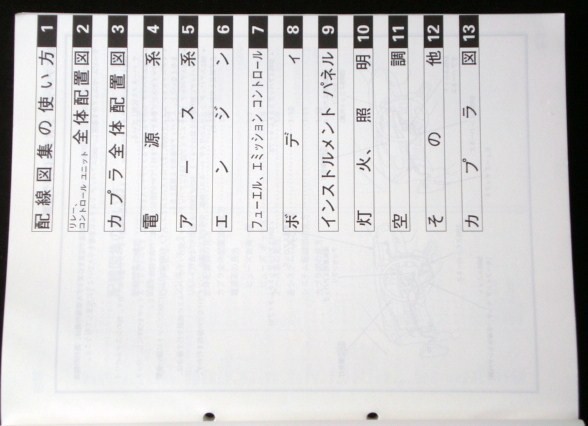 配線図集の使い方 1
リレー、コントロール ユニット 全体配置図 2
カプラ全体配置図 3
電源系 4
アース系 5
エンジン 6
フューエル、エミッション コントロール 7
ボディ 8
インストルメント パネル 9
灯火、照明 10
空調 11
その他 12
カプラ図 13